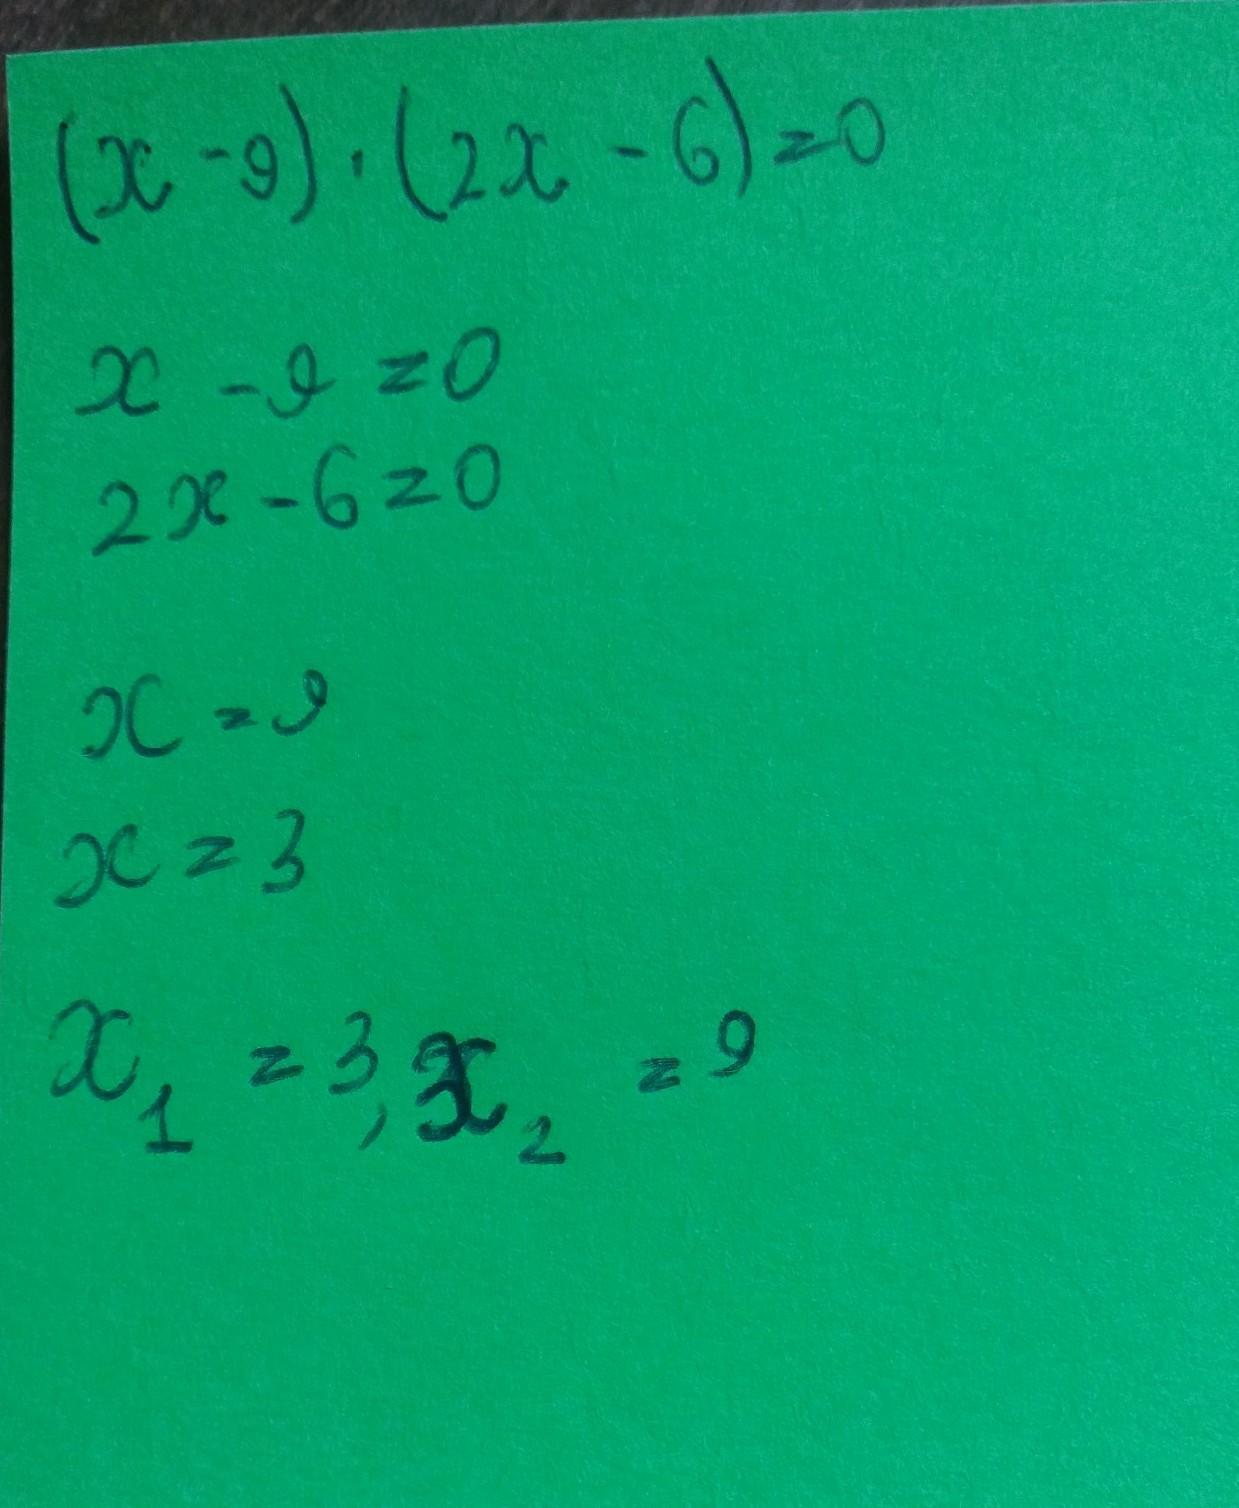 (x - 9) · (2x - 6) = 0
x - 9 = 0
2x - 6 = 0
x = 9
x = 3
x₁ = 3, x₂ = 9